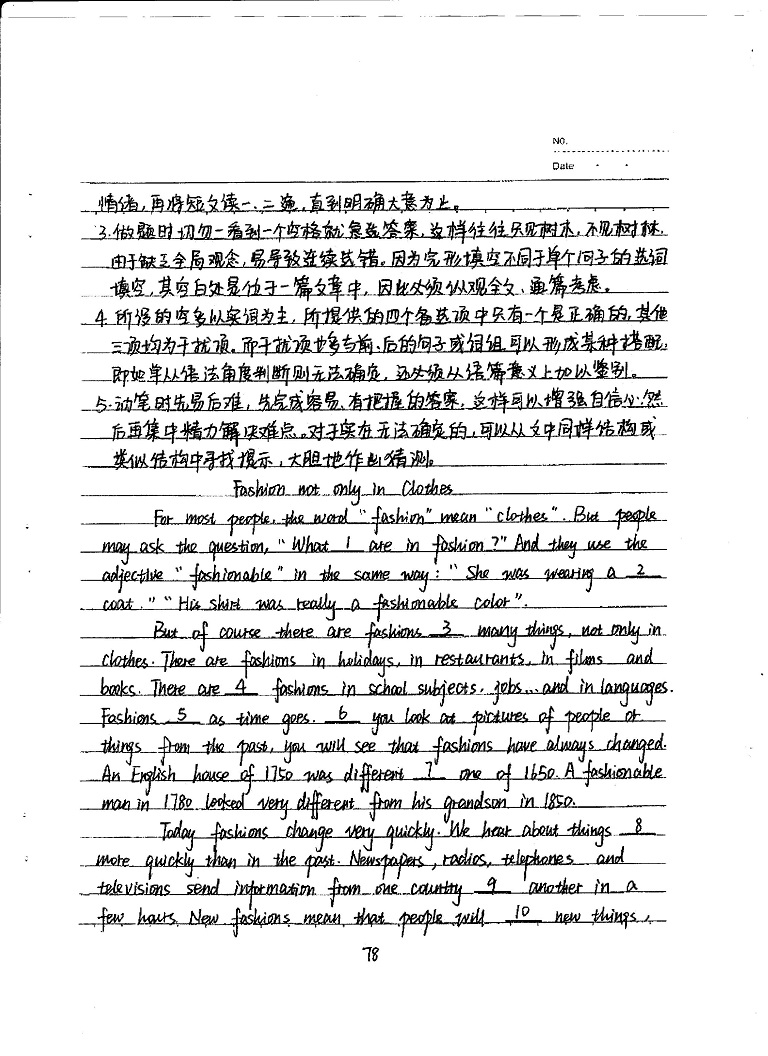 NO.
Date
情绪，再将短文读一、二遍，直到明确大意为止。
3.做题时切勿一看到一个空格就急选答案，这样往往只见树木，不见树林，
由于缺乏全局观念，易导致连续选错。因为完形填空不同于单个句子的选词
填空，其空白处是位于一篇文章中，因此必须纵观全文、通篇考虑。
4.所设的空多以实词为主，所提供的四个备选项中只有一个是正确的，其他
三项均为干扰项。而干扰项也多与前、后的句子或词组可以形成某种搭配，
即如单从语法角度判断则无法确定，还必须从语篇意义上加以鉴别。
5.动笔时先易后难，先完成容易、有把握的答案，这样可以增强自信心，然
后再集中精力解决难点。对于实在无法确定的，可以从文中同样结构或
类似结构中寻找提示，大胆地作出猜测。
Fashion not only in Clothes
For most people, the word "fashion" mean "clothes". But people
may ask the question, "What 1 are in fashion?" And they use the
adjective "fashionable" in the same way: "She was wearing a 2
coat." "His shirt was really a fashionable color".
But of course there are fashions 3 many things, not only in
clothes. There are fashions in holidays, in restaurants, in films and
books. There are 4 fashions in school subjects, jobs...and in languages.
Fashions 5 as time goes. 6 you look at pictures of people or
things from the past, you will see that fashions have always changed.
An English house of 1750 was different 7 one of 1650. A fashionable
man in 1780 looked very different from his grandson in 1850.
Today fashions change very quickly. We hear about things 8
more quickly than in the past. Newspapers, radios, telephones and
televisions send information from one country 9 another in a
few hours. New fashions mean that people will 10 new things,
78